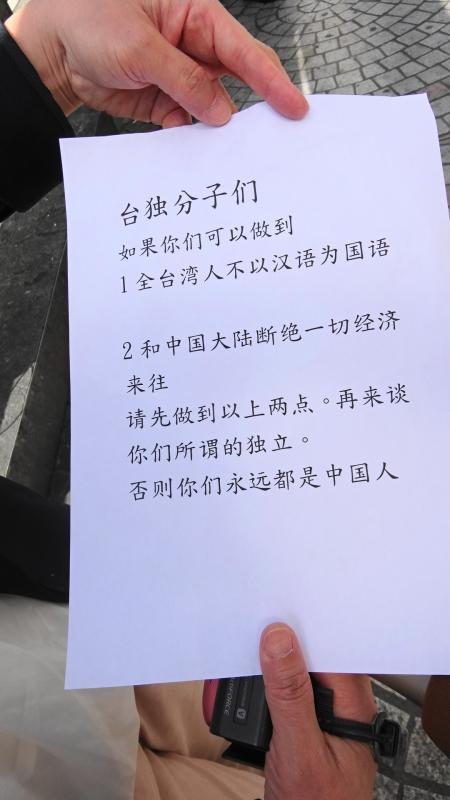 台独分子们
如果你们可以做到
1 全台湾人不以汉语为国语
2 和中国大陆断绝一切经济
来往
请先做到以上两点。再来谈
你们所谓的独立。
否则你们永远都是中国人